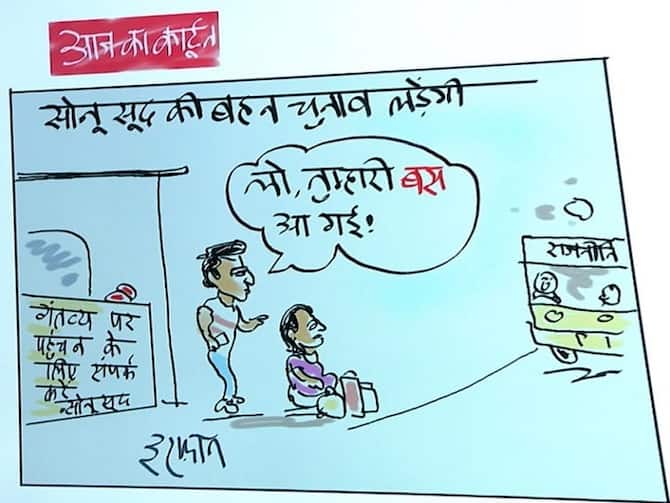 आज का कार्टून
सोनू सूद की बहन चुनाव लड़ेंगी
लो, तुम्हारी बस
आ गई!
राजनीति
गंतव्य पर
पहुंचने के
लिए संपर्क
करें
-सोनू सूद
इरफान